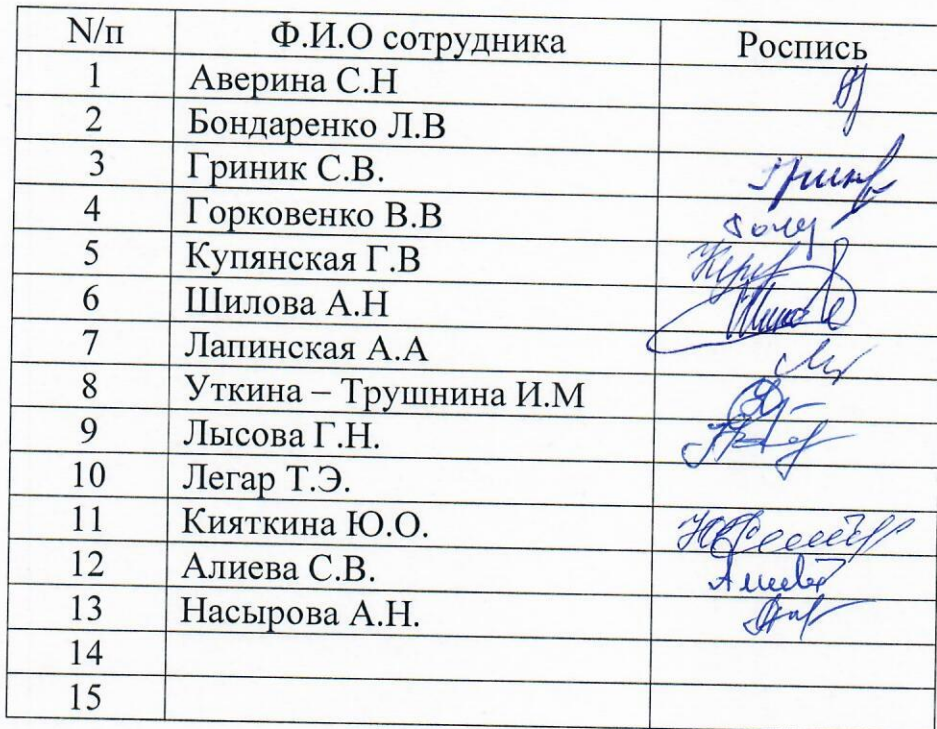 N/п Ф.И.О сотрудника Роспись
1 Аверина С.Н
2 Бондаренко Л.В
3 Гриник С.В.
4 Горковенко В.В
5 Купянская Г.В
6 Шилова А.Н
7 Лапинская А.А
8 Уткина – Трушнина И.М
9 Лысова Г.Н.
10 Легар Т.Э.
11 Кияткина Ю.О.
12 Алиева С.В.
13 Насырова А.Н.
14
15